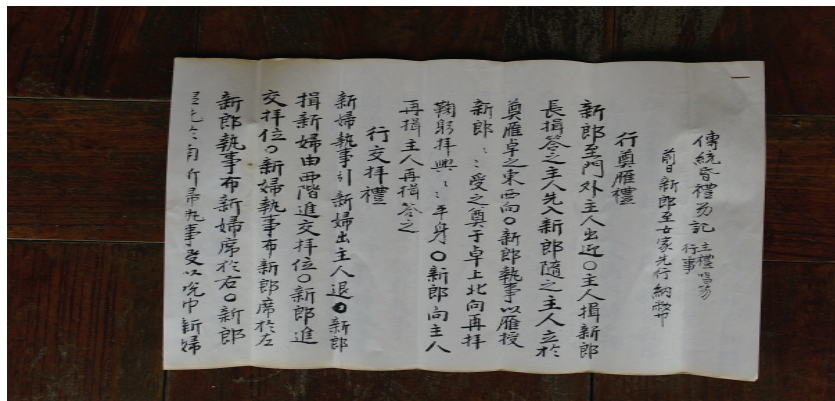 傳統昏禮笏記 主禮唱笏 行事
前日新郎至女家先行納幣
行奠雁禮
新郎至門外主人出近〇主人揖新郎
長揖答之主人先入新郎隨之主人立於
奠雁卓之東西向〇新郎執事以雁授
新郎〻受之奠于卓上北向再拜
鞠躬拜興〻平身〇新郎向主人
再揖主人再揖答之
行交拜禮
新婦執事引新婦出主人退〇新郎
揖新婦由西階進交拜位〇新郎進
交拜位〇新婦執事布新郎席於左
新郎執事布新婦席於右〇新郎
於南 執事受以帨巾新婦